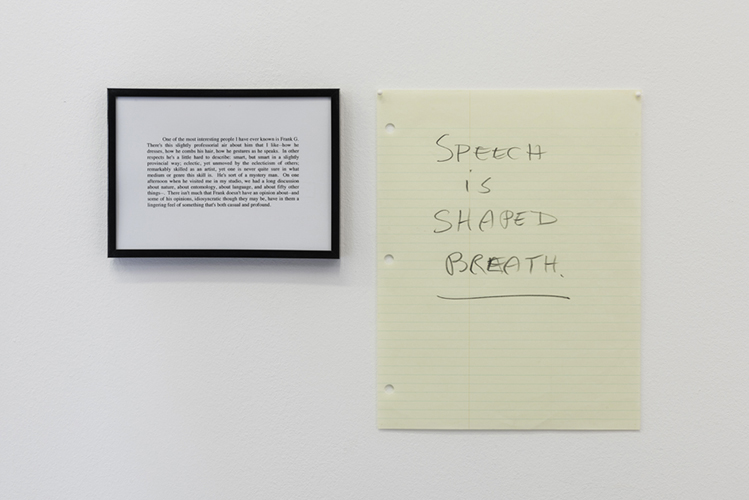 One of the most interesting people I have ever known is Frank G.
There's this slightly professorial air about him that I like--how he
dresses, how he combs his hair, how he gestures as he speaks. In other
respects he's a little hard to describe: smart, but smart in a slightly
provincial way; eclectic, yet unmoved by the eclecticism of others;
remarkably skilled as an artist, yet one is never quite sure in what
medium or genre this skill is. He's sort of a mystery man. On one
afternoon when he visited me in my studio, we had a long discussion
about nature, about entomology, about language, and about fifty other
things-- There isn't much that Frank doesn't have an opinion about--and
some of his opinions, idiosyncratic though they may be, have in them a
lingering feel of something that's both casual and profound.
SPEECH
iS
SHAPED
BREATH.